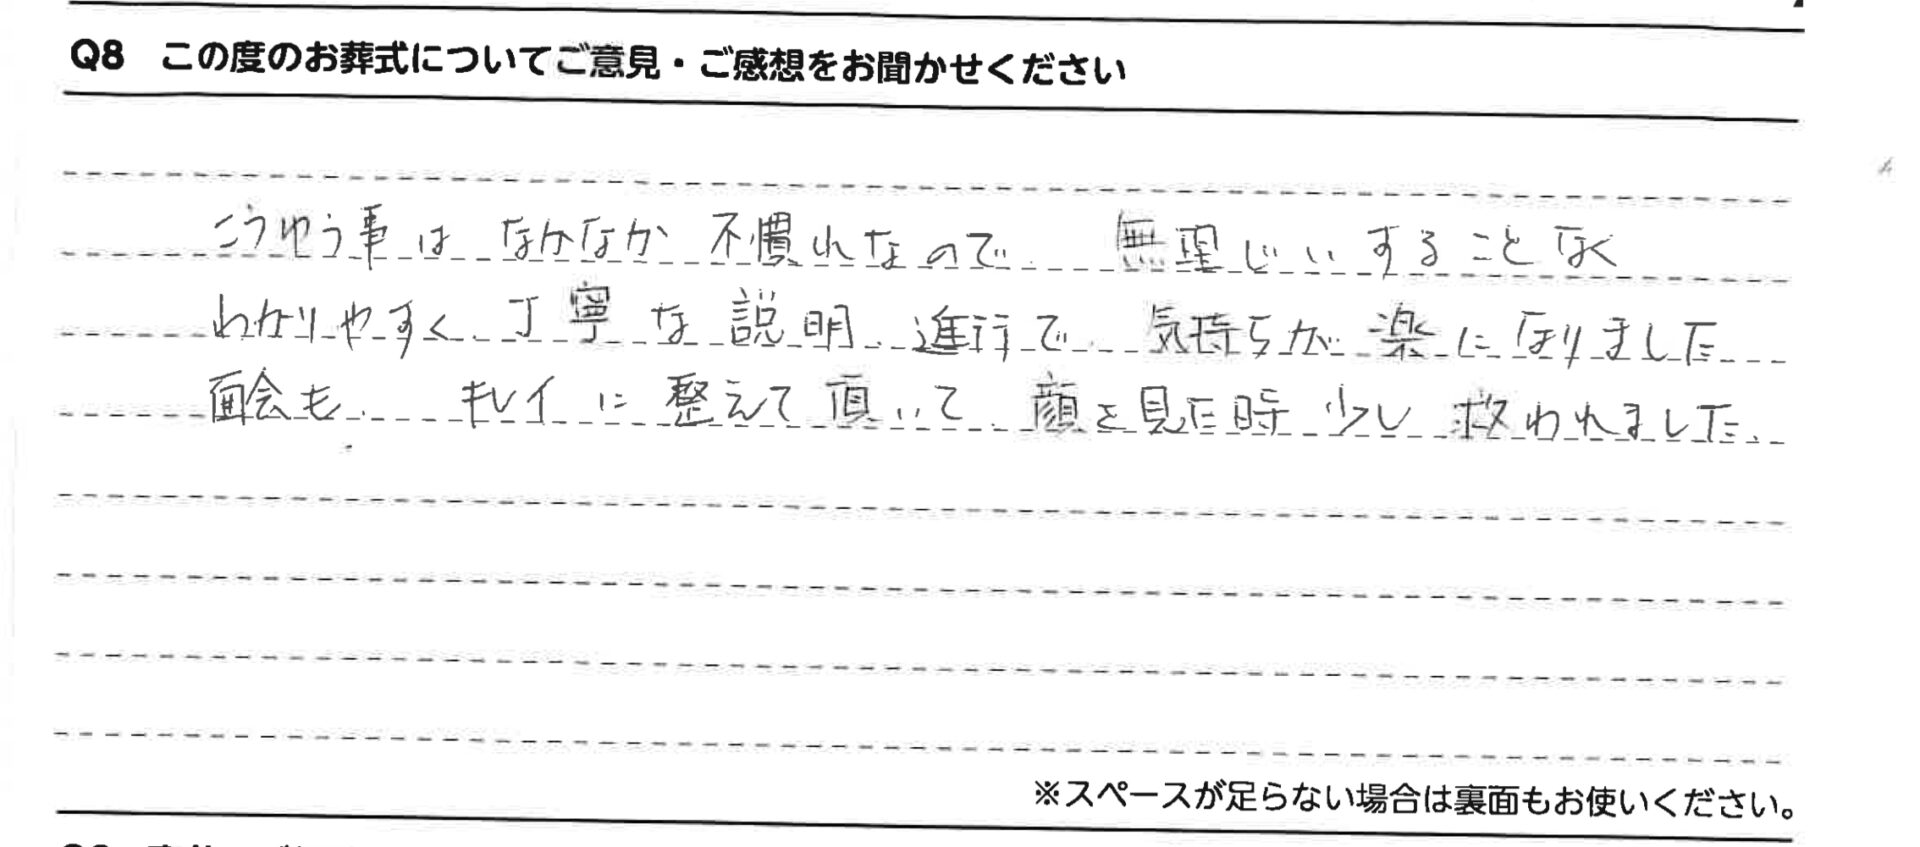 Q8 この度のお葬式についてご意見・ご感想をお聞かせください
こうゆう事は なかなか 不慣れなので、 無理じいすること なく
わかりやすく、丁寧な説明、進行で、 気持ちが楽になりました
面会も、 キレイに整えて頂いて、顔を見た時 少し 救われました、
※スペースが足らない場合は裏面もお使いください。